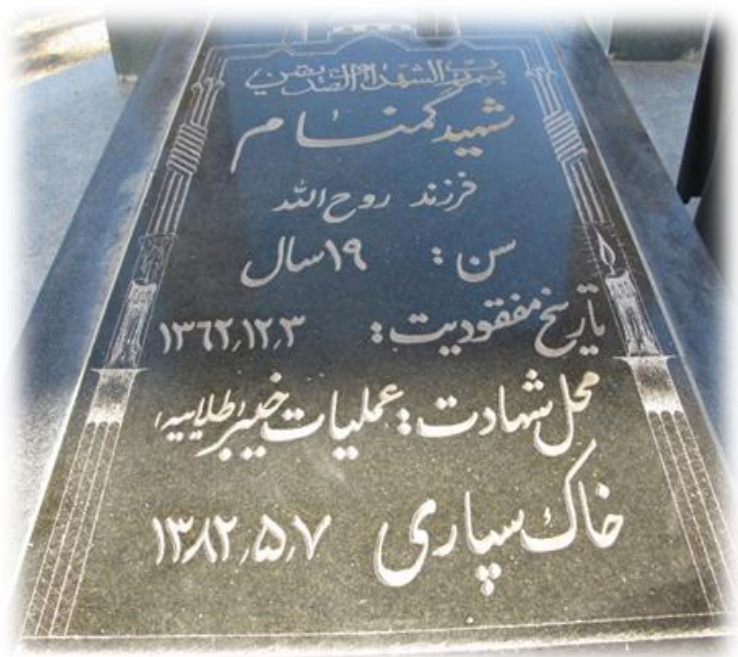 بسم رب الشهداء و الصدیقین
شهید گمنام
فرزند روح الله
سن : ۱۹ سال
تاریخ مفقودیت : ۱۳۶۲,۱۲,۳
محل شهادت : عملیات خیبر (طلاییه)
خاک سپاری ۱۳۸۲,۵,۷